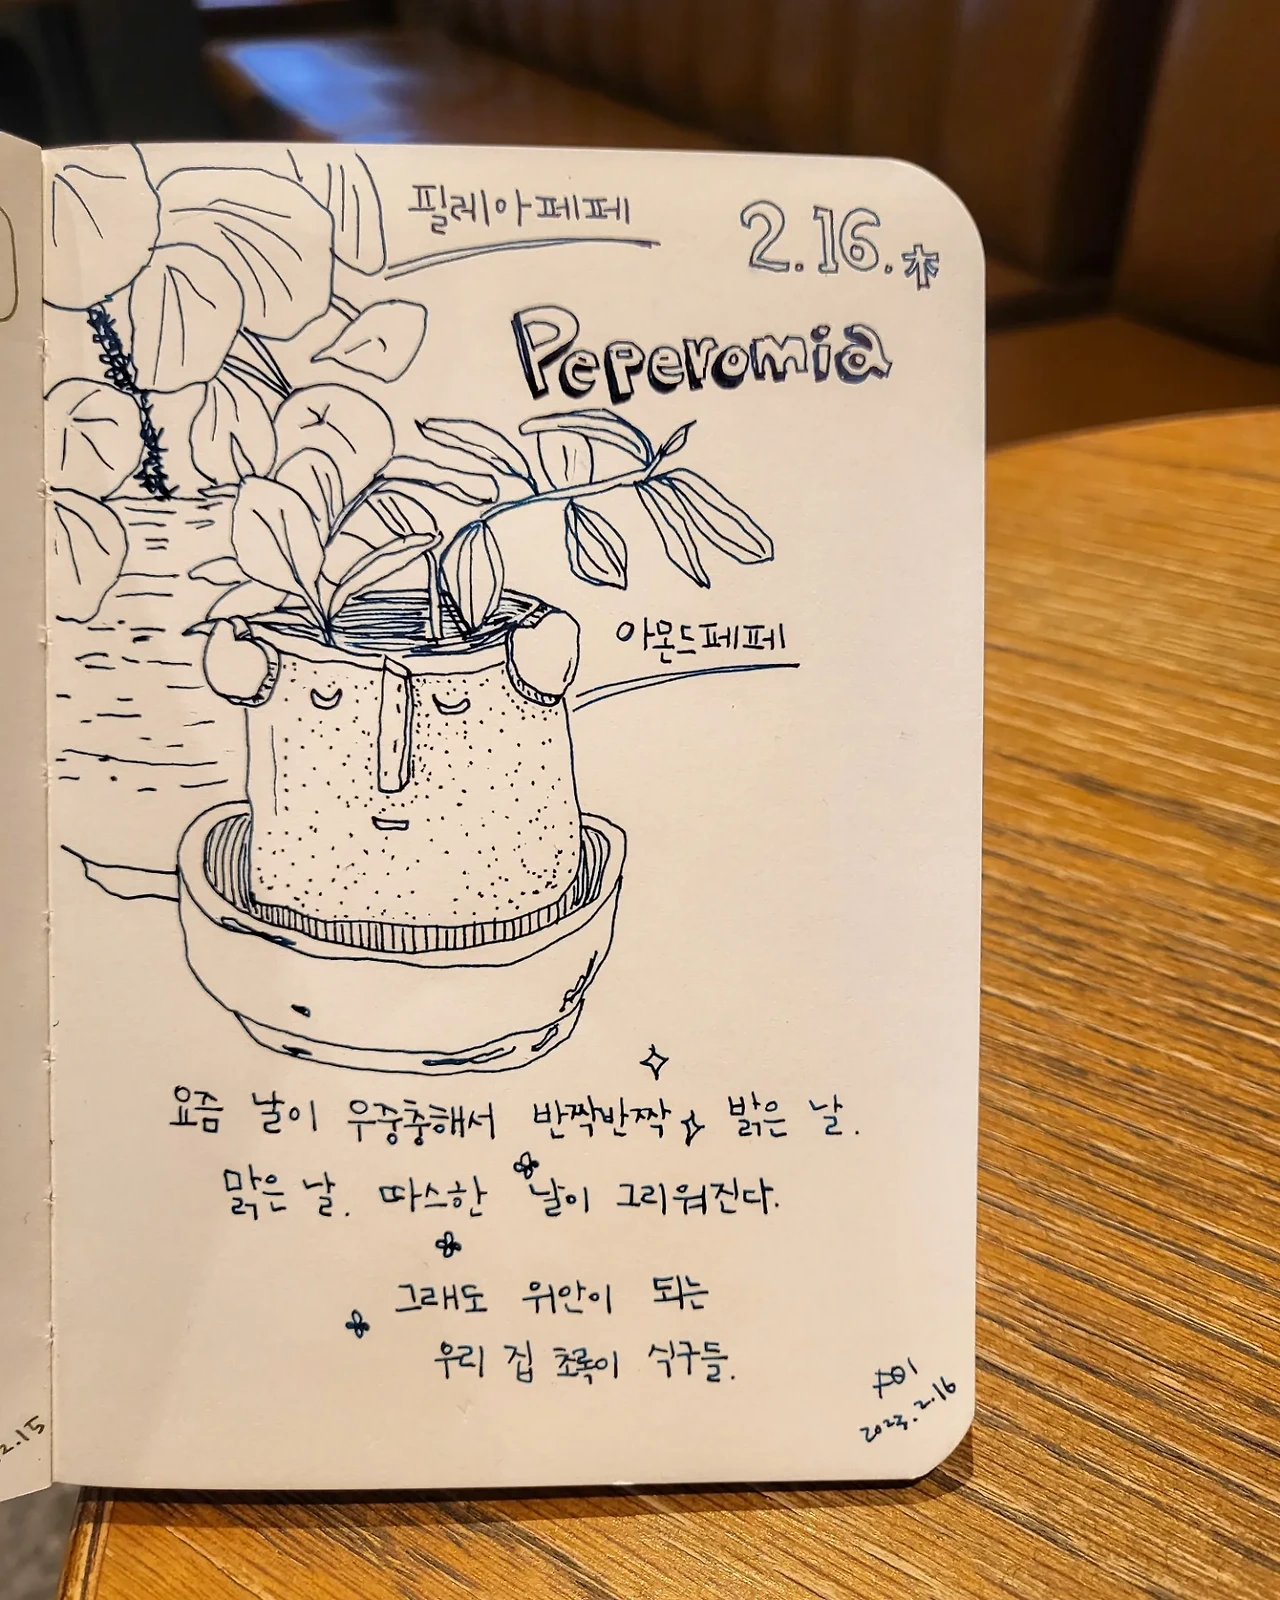 필레아페페
2.16.木
Peperomia
아몬드페페
요즘 날이 우중충해서 반짝반짝 밝은 날.
맑은 날. 따스한 날이 그리워진다.
그래도 위안이 되는
우리 집 초록이 식구들.
2023.2.16
2.15